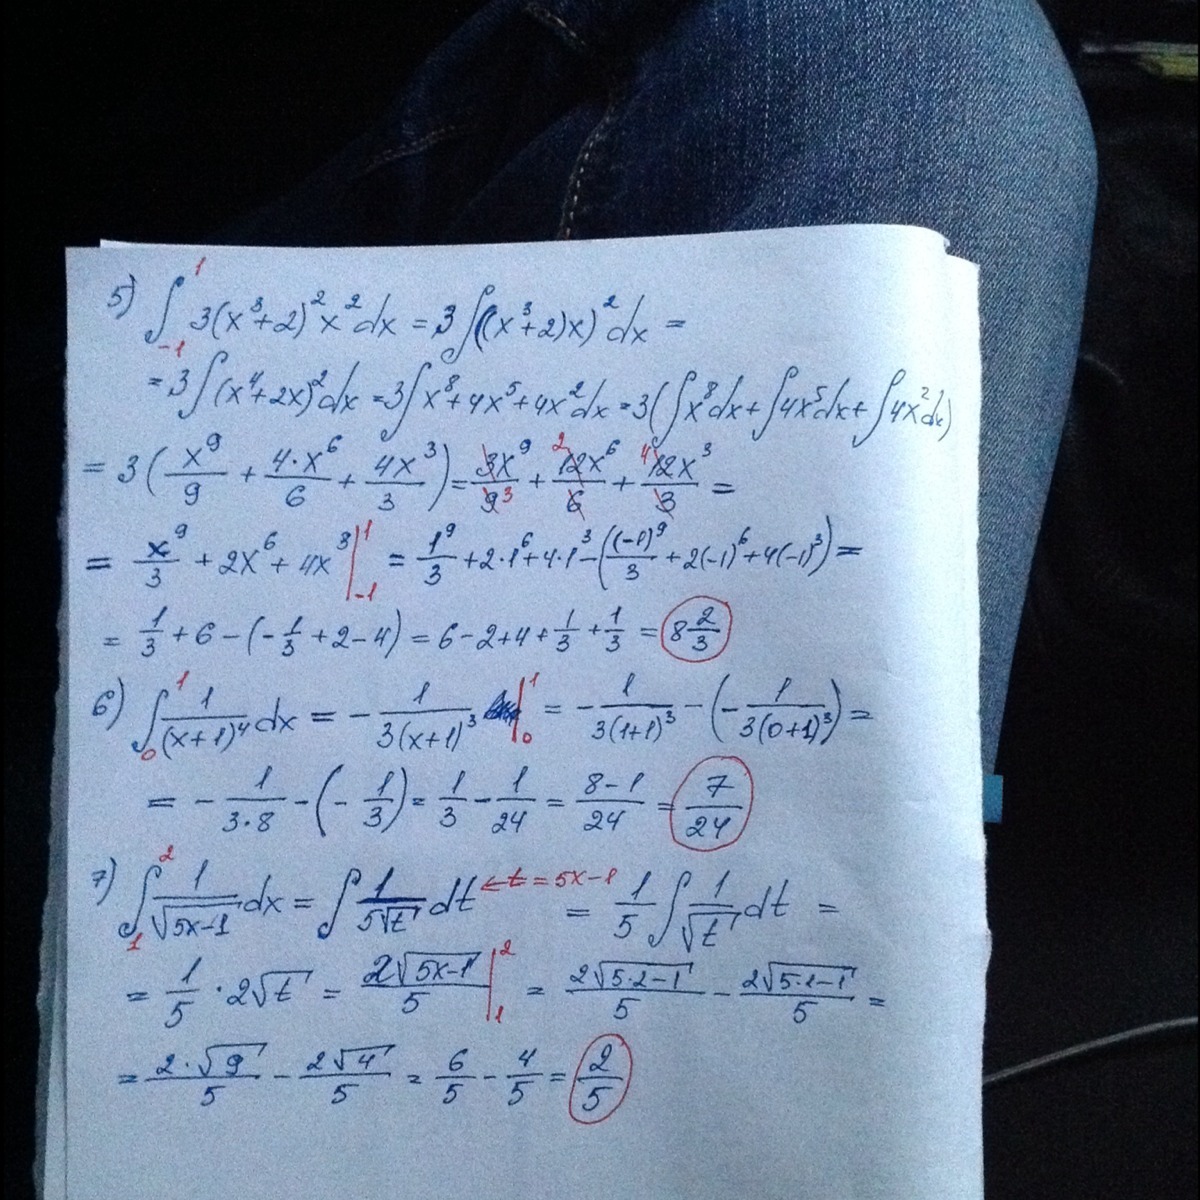 5) ∫₋₁¹ 3(x³+2)²x²dx = 3∫((x³+2)x)²dx =
= 3∫(x⁴+2x)²dx = 3∫x⁸+4x⁵+4x²dx = 3(∫x⁸dx + ∫4x⁵dx + ∫4x²dx)
= 3(x⁹/9 + 4·x⁶/6 + 4x³/3) = 3x⁹/9 3 + 2 12x⁶/6 + 4 12x³/3 =
= x⁹/3 + 2x⁶ + 4x³ |₋₁¹ = 1⁹/3 + 2·1⁶ + 4·1³ - ((-1)⁹/3 + 2(-1)⁶ + 4(-1)³) =
= 1/3 + 6 - (-1/3 + 2 - 4) = 6 - 2 + 4 + 1/3 + 1/3 = 8 2/3
6) ∫₀¹ 1/(x+1)⁴ dx = - 1/3(x+1)³ |₀¹ = - 1/3(1+1)³ - (- 1/3(0+1)³) =
= - 1/3·8 - (- 1/3) = 1/3 - 1/24 = 8-1/24 = 7/24
7) ∫₁² 1/√5x-1 dx = ∫ 1/5√t dt ← t = 5x-1 = 1/5 ∫ 1/√t dt =
= 1/5 · 2√t = 2√5x-1/5 |₁² = 2√5·2-1/5 - 2√5·1-1/5 =
= 2·√9/5 - 2√4/5 = 6/5 - 4/5 = 2/5